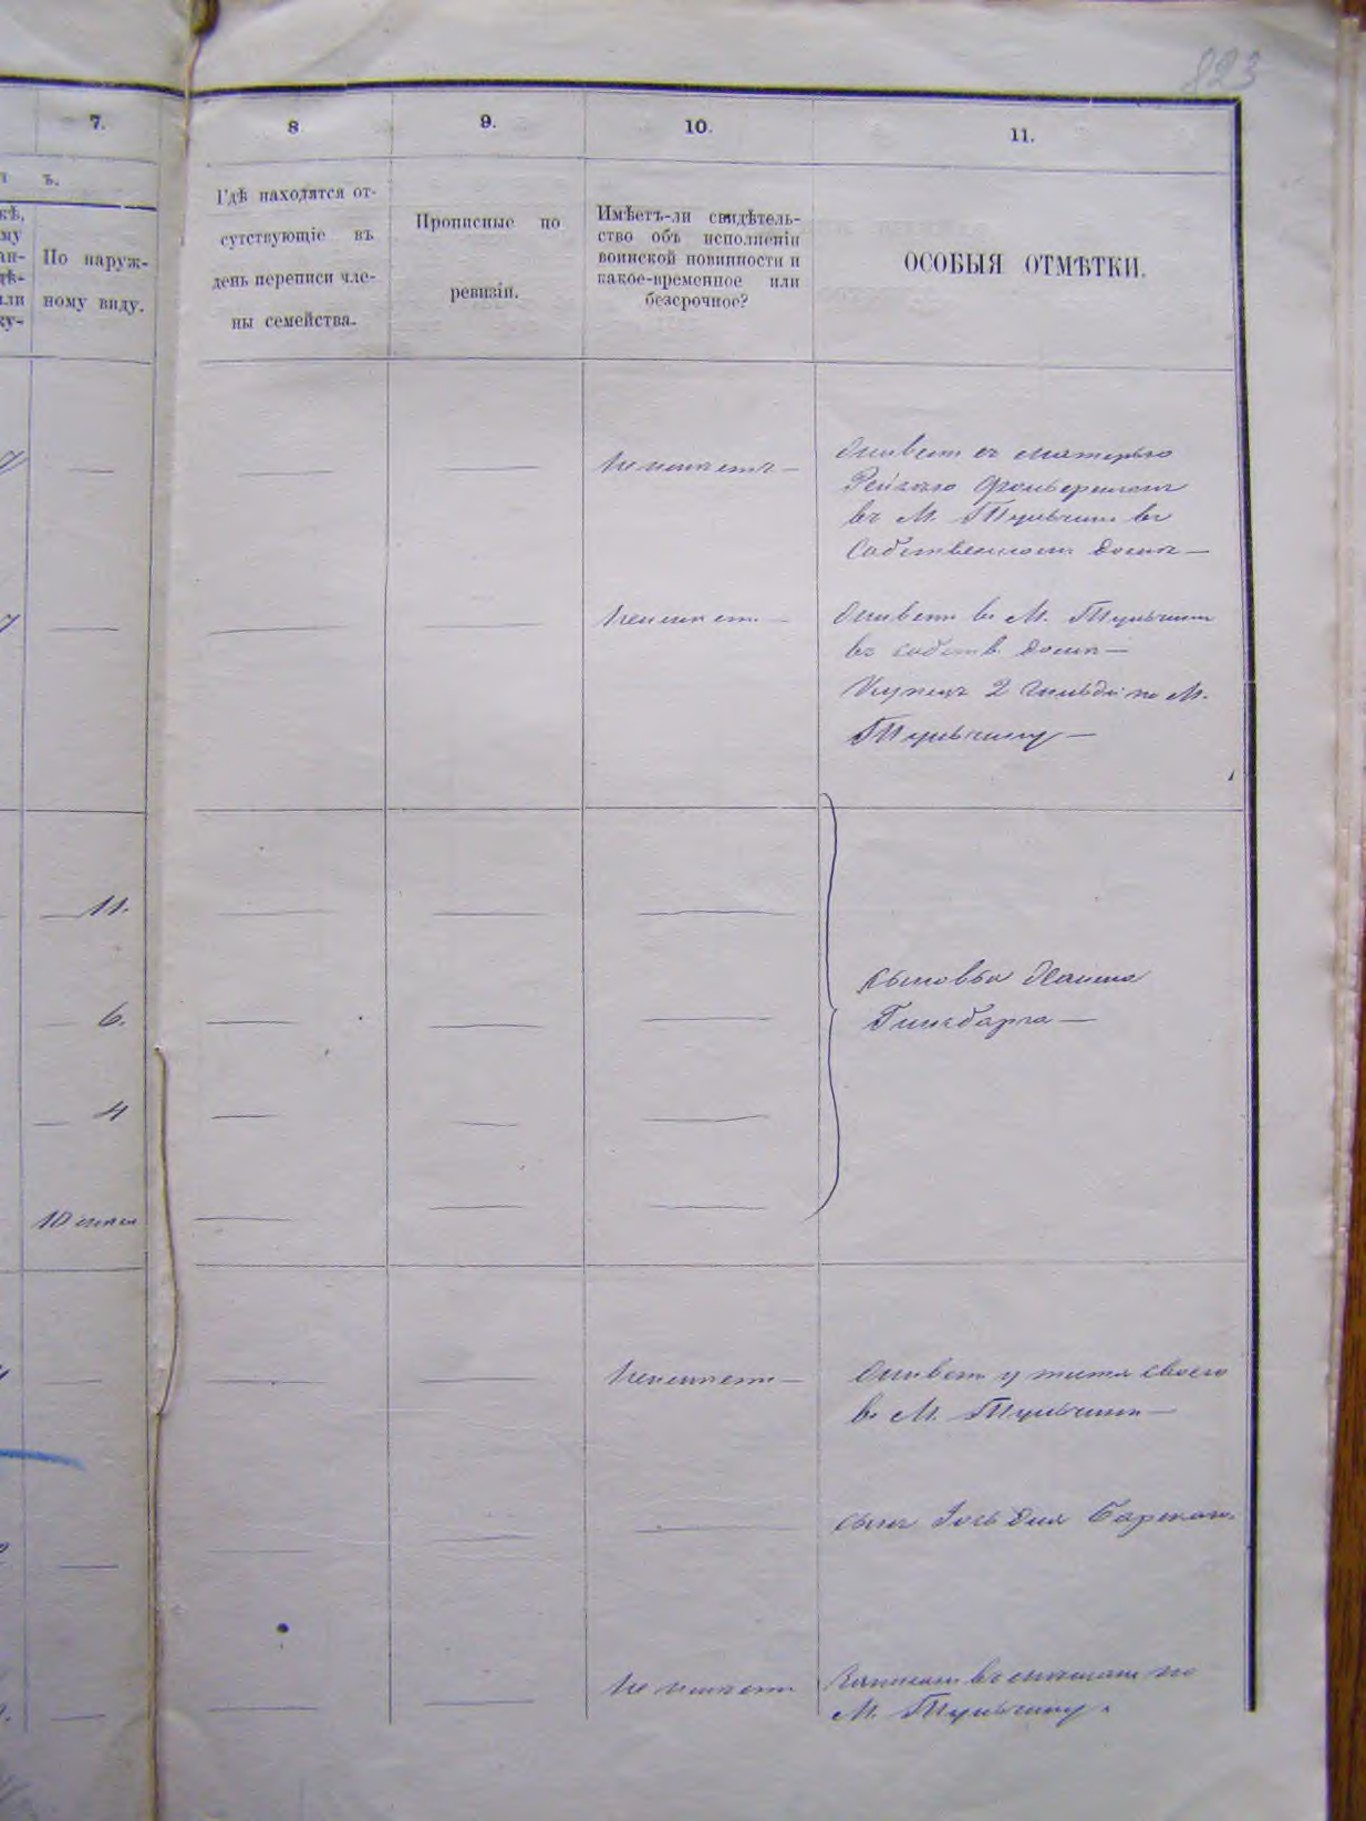 823
7.
8
9.
10.
11.
ъ.
По наруж-
ному виду.
Гдѣ находятся от-
сутствующіе въ
день переписи чле-
ны семейства.
Прописные по
ревизіи.
Имѣетъ-ли свидѣтель-
ство объ исполненіи
воинской повинности и
какое-временное или
безсрочное?
ОСОБЫЯ ОТМѢТКИ.
Неимѣетъ
Живетъ съ матерью
въ М. Тульчинѣ въ
Собственномъ домѣ
Неимѣетъ
Живетъ въ М. Тульчинѣ
въ собств. домѣ
Купецъ 2 Гильдіи по М.
Тульчину
11.
6.
4
10
сыновья Хаима
Гинсбарга
Неимѣетъ
Живетъ у тестя своего
въ М. Тульчинѣ
сынъ
Неимѣетъ
по
М. Тульчину.